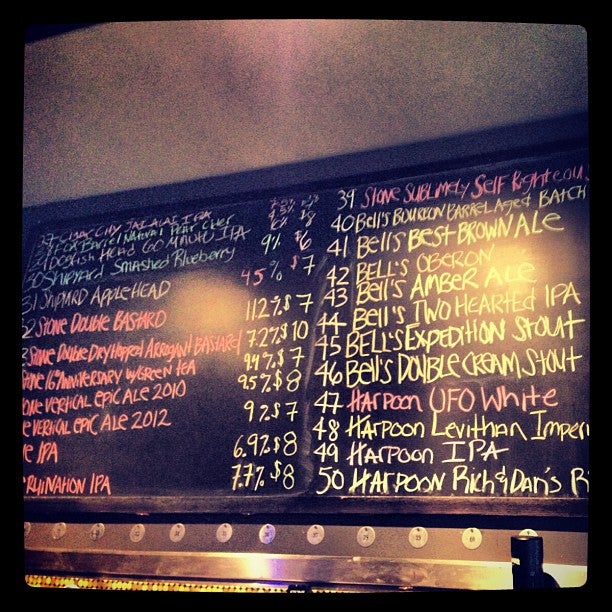 CIGAR CITY JAI ALAI IPA
FOX BARREL NATURAL PEAR CIDER
DOGFISH HEAD 60 MINUTE IPA
30 SHIPYARD SMASHED BLUEBERRY 9% $6
31 SHIPYARD APPLEHEAD 4.5% $7
2 STONE DOUBLE BASTARD 11.2% $7
3 STONE DOUBLE DRY HOPPED ARROGANT BASTARD 7.2% $10
STONE 16th ANNIVERSARY w/GREEN TEA 9.4% $7
ONE VERTICAL EPIC ALE 2010 9.5% $8
E VERTICAL EPIC ALE 2012 9% $7
E IPA 6.9% $8
RUINATION IPA 7.7% $8
39 STONE SUBLIMELY SELF RIGHTEOUS
40 BELL'S BOURBON BARREL AGED BATCH
41 BELL'S BEST BROWN ALE
42 BELL'S OBERON
43 BELL'S AMBER ALE
44 BELL'S TWO HEARTED IPA
45 BELL'S EXPEDITION STOUT
46 BELL'S DOUBLE CREAM STOUT
47 HARPOON UFO WHITE
48 HARPOON LEVITHAN IMPERI
49 HARPOON IPA
50 HARPOON RICH & DAN'S R